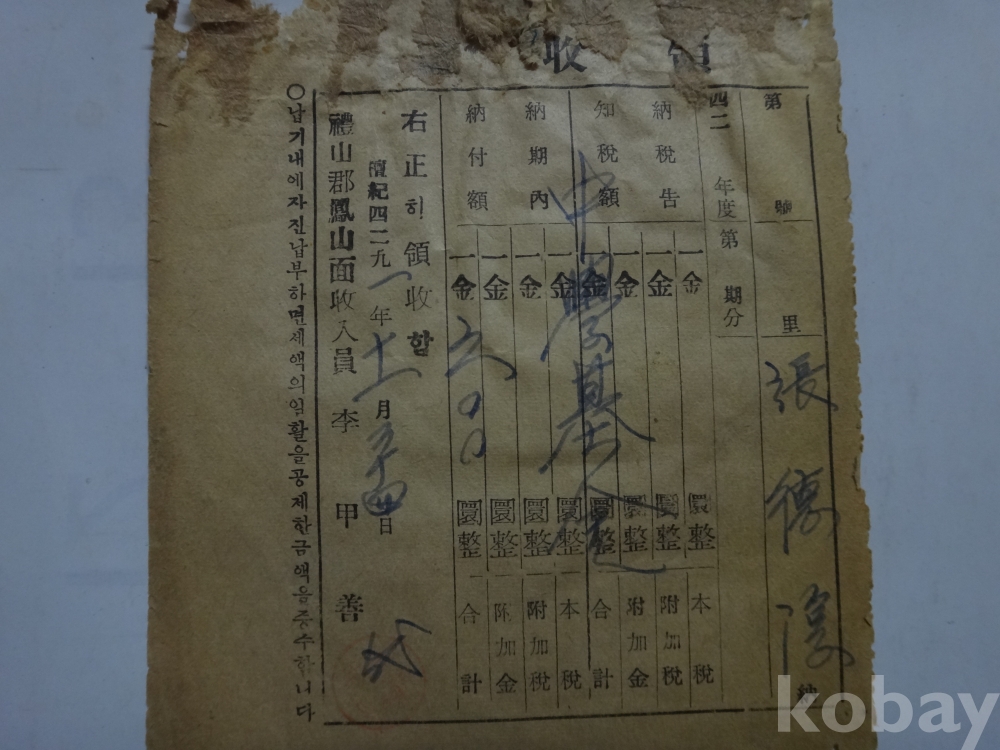 領收
第 號 里 張德 納
四二 年度第 期分
納稅告 一金 圜整 本稅
一金 圜整 附加稅
知稅額 一金 圜整 附加金
一金 圜整 合計
納期內 一金 圜整 本稅
一金 圜整 附加稅
納付額 一金 圜整 附加金
一金 六〇〇 圜整 合計
中學基金
右正히領收함
檀紀四二九一年十一月 日
禮山郡鳳山面收入員 李甲善 代
○납기내에자진납부하면세액의일활을공제한금액을증수합니다
kobay